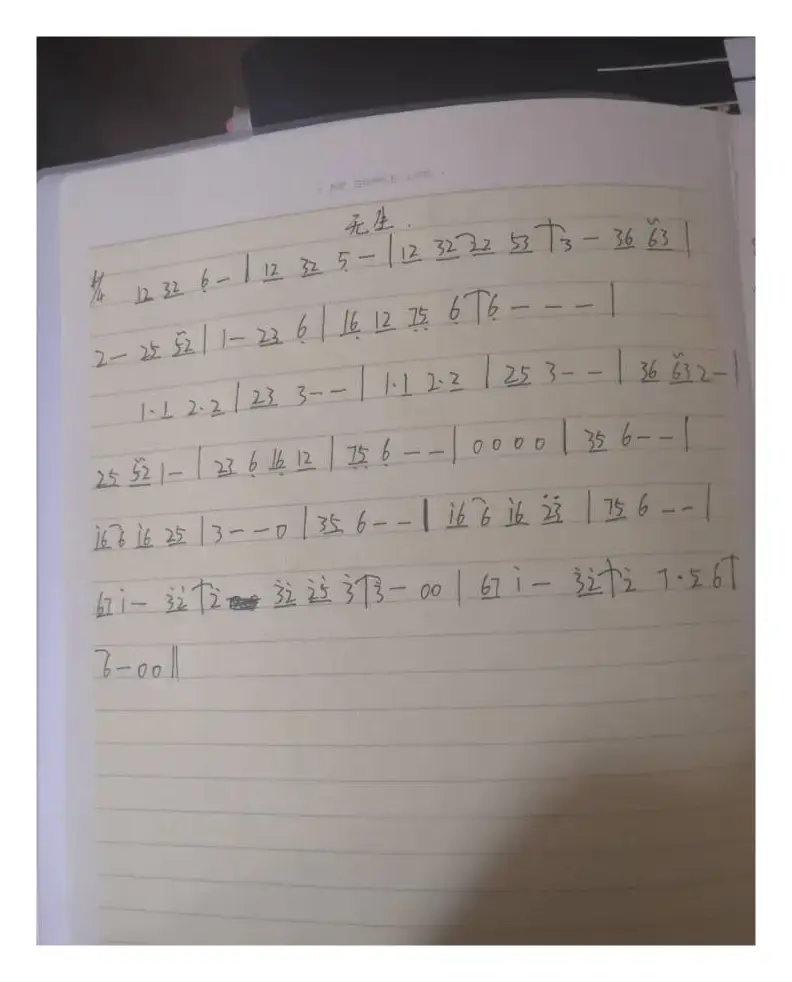 无生.
4/4 12 32 6̣ - | 12 32 5̣ - | 12 32 22 53 | 3 - 36 63 |
2 - 25 52 | 1 - 23 6̣ | 16̣ 12 7̣5̣ 6̣ | 6̣ - - - |
1·1 2·2 | 23 3 - - | 1·1 2·2 | 25 3 - - | 36 63 2 - |
25 52 1 - | 23 6̣ 16̣ 12 | 7̣5̣ 6̣ - - | 0 0 0 0 | 35 6 - - |
i6 6 i6 25 | 3 - - 0 | 35 6 - - | i6 6 i6 2̇3̇ | 75 6 - - |
67 i - 3̇2̇ | 2̇ 3̇2̇ 2̇5̇ 3̇ | 3̇ - 00 | 67 i - 3̇2̇ | 2̇ 7·5 6 |
6 - 00 ||